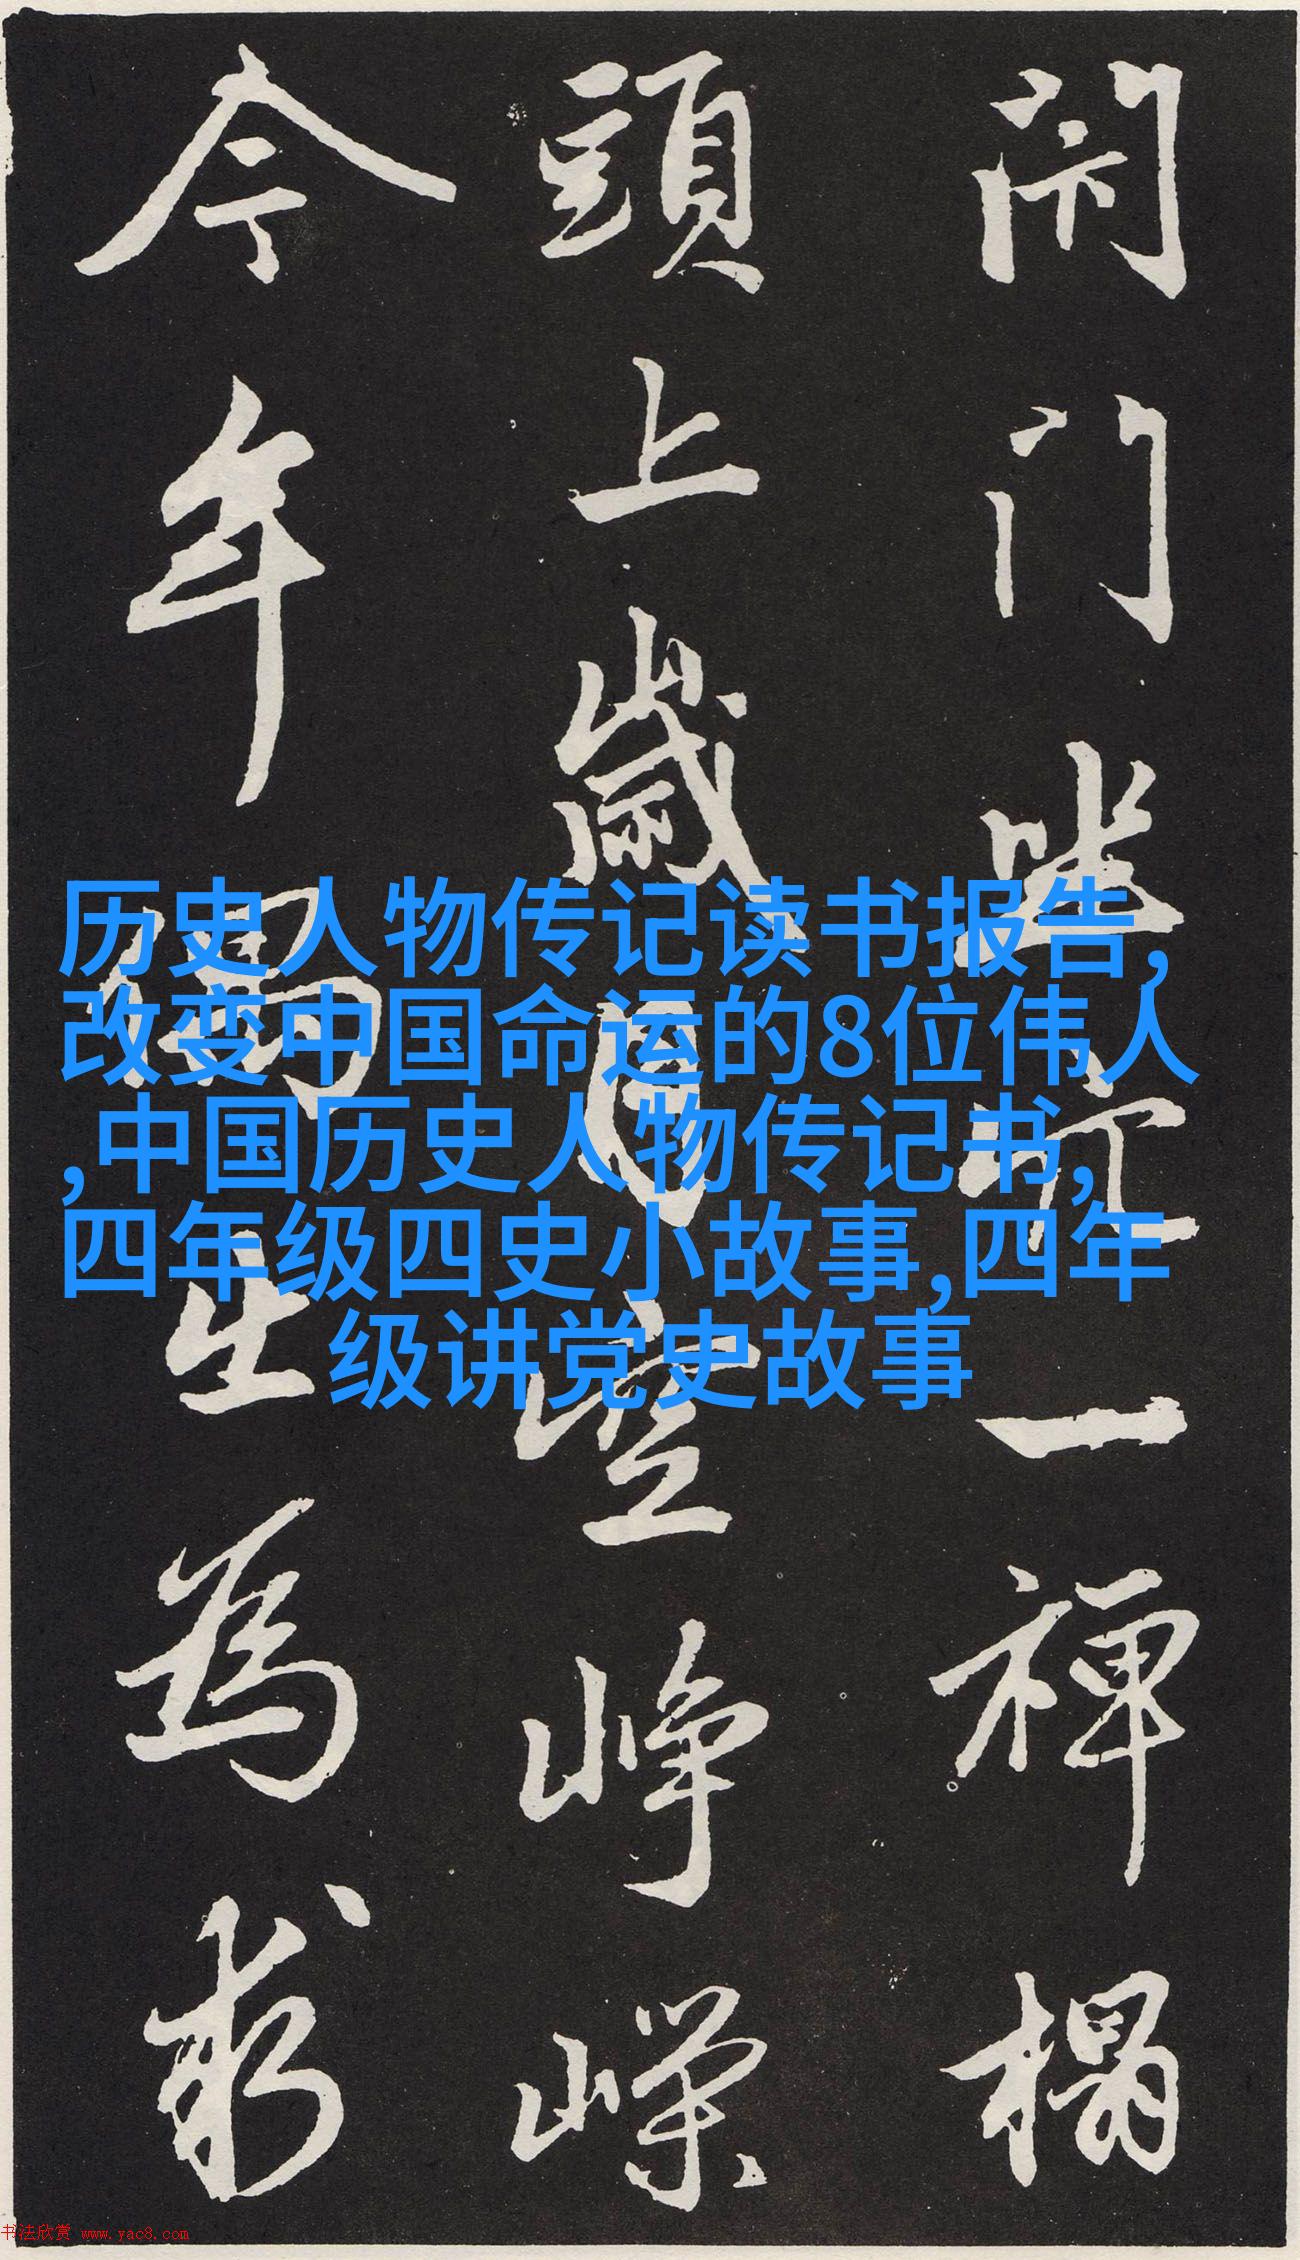 历史人物传记读书报告,
改变中国命运的8位伟人
,中国历史人物传记书,
四年级四史小故事,四年
级讲党史故事
閉門坐穴一禪榻
頭上歲月空崢嶸
今年偶出為求
书法欣赏 www.yac8.com